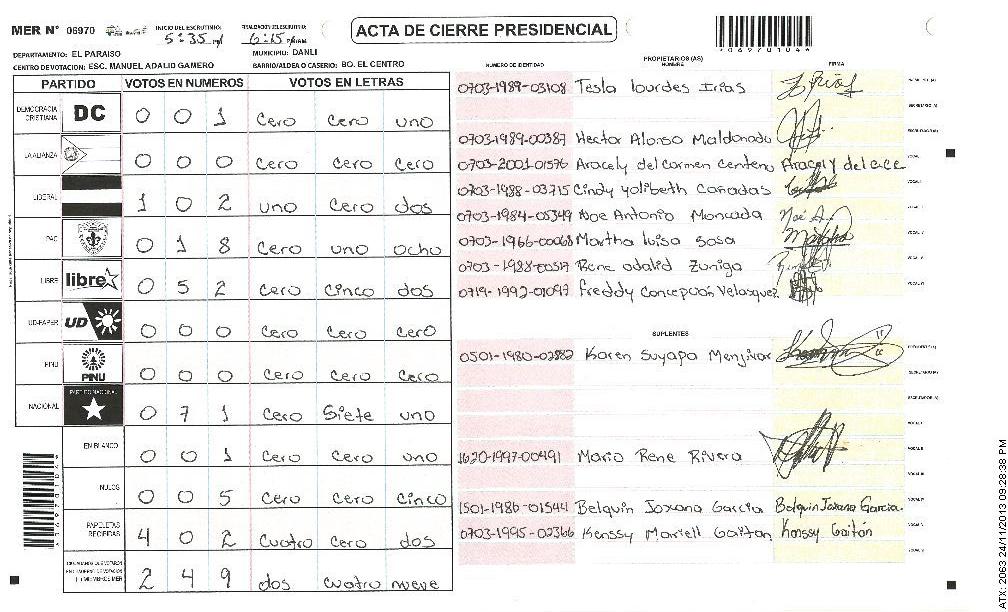 MER N° 06970 INICIO DEL ESCRUTINIO: 5:35 pm FINALIZACION ESCRUTINIO: 6:15 P/M/AM. ACTA DE CIERRE PRESIDENCIAL *06970104*
DEPARTAMENTO: EL PARAISO MUNICIPIO: DANLI
CENTRO DE VOTACION: ESC. MANUEL ADALID GAMERO BARRIO/ALDEA O CASERIO: BO. EL CENTRO
PARTIDO VOTOS EN NUMEROS VOTOS EN LETRAS
DEMOCRACIA CRISTIANA DC 0 0 1 cero cero uno
LA ALIANZA 0 0 0 cero cero cero
LIBERAL 1 0 2 uno cero dos
PAC 0 1 8 cero uno ocho
LIBRE libre 0 5 2 cero cinco dos
UD-FAPER UD 0 0 0 cero cero cero
PINU PINU 0 0 0 cero cero cero
NACIONAL PARTIDO NACIONAL 0 7 1 cero siete uno
EN BLANCO 0 0 1 cero cero uno
NULOS 0 0 5 cero cero cinco
PAPELETAS RECIBIDAS 4 0 2 cuatro cero dos
CIUDADANOS QUE VOTARON EN CUADERNO DE VOTACION (+) MIEMBROS MER 2 4 9 dos cuatro nueve
PROPIETARIOS (AS)
NUMERO DE IDENTIDAD NOMBRE FIRMA
0703-1989-03108 Tesla lourdes Irias
0703-1989-00387 Hector Alonso Maldonado
0703-2001-01576 Aracely del carmen centeno Aracely del c.c.e
0703-1988-03715 Cindy yolibeth cañadas
0703-1984-05349 Noe Antonio Moncada Noé A.
0703-1966-00068 Martha luisa sosa Martha
0703-1988-00517 Rene adalid Zuniga
0719-1992-01097 freddy concepción Velasquez
SUPLENTES
0501-1980-02882 Karen Suyapa Menjivar
1620-1997-00491 Mario Rene Rivera
1501-1986-01544 Belquin Joxana Garcia Belquin Joxana Garcia.
0703-1995-02366 Kenssy Mariell Gaitan Kenssy Gaitán
ATX: 2063 24/11/2013 09:28:38 PM